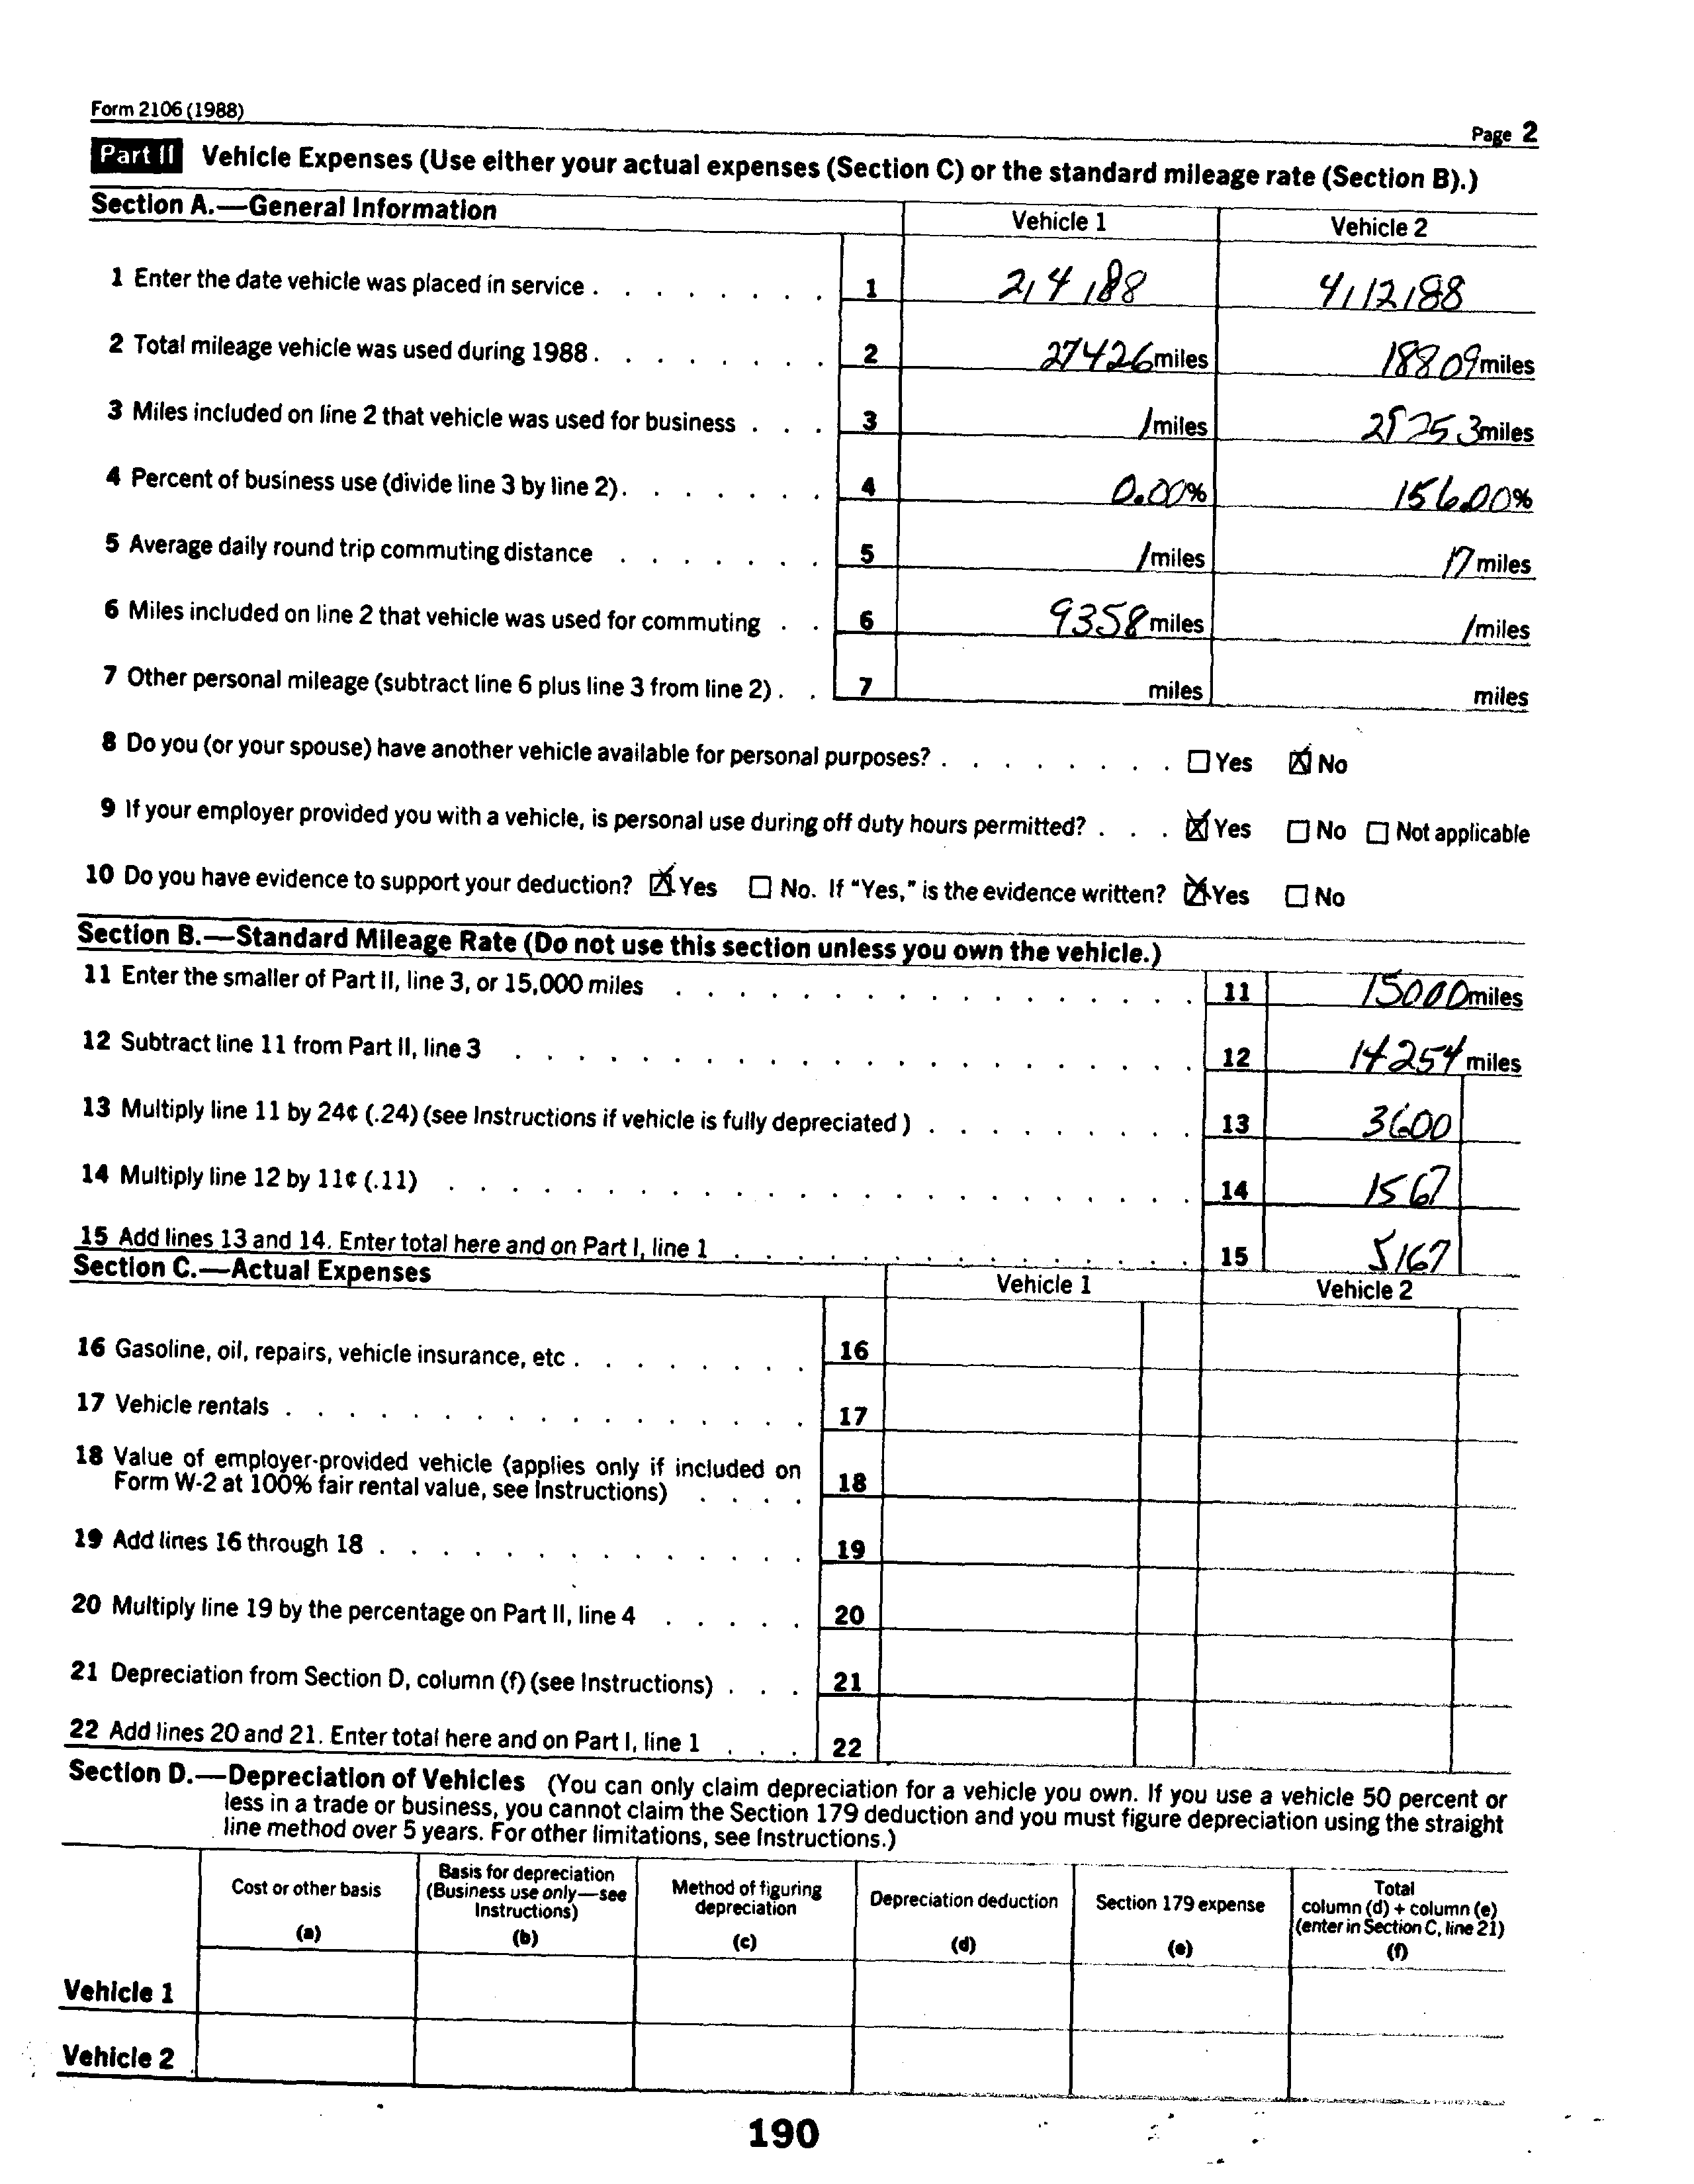 Form 2106 (1988)
Page 2
Part II Vehicle Expenses (Use either your actual expenses (Section C) or the standard mileage rate (Section B).)
Section A.—General Information Vehicle 1 Vehicle 2
1 Enter the date vehicle was placed in service . . . . . . . . 1 2/4/88 4/12/88
2 Total mileage vehicle was used during 1988 . . . . . . . . 2 27426 miles 18809 miles
3 Miles included on line 2 that vehicle was used for business . . . 3 1 miles 29253 miles
4 Percent of business use (divide line 3 by line 2) . . . . . . . 4 0.00% 156.00%
5 Average daily round trip commuting distance . . . . . . . 5 1 miles 17 miles
6 Miles included on line 2 that vehicle was used for commuting . . 6 9358 miles 1 miles
7 Other personal mileage (subtract line 6 plus line 3 from line 2) . . 7 miles miles
8 Do you (or your spouse) have another vehicle available for personal purposes? . . . . . . . . ☐ Yes ☒ No
9 If your employer provided you with a vehicle, is personal use during off duty hours permitted? . . . ☒ Yes ☐ No ☐ Not applicable
10 Do you have evidence to support your deduction? ☒ Yes ☐ No. If "Yes," is the evidence written? ☒ Yes ☐ No
Section B.—Standard Mileage Rate (Do not use this section unless you own the vehicle.)
11 Enter the smaller of Part II, line 3, or 15,000 miles . . . . . . . . . . . . . . . . . 11 15000 miles
12 Subtract line 11 from Part II, line 3 . . . . . . . . . . . . . . . . . . . . . . 12 14254 miles
13 Multiply line 11 by 24¢ (.24) (see Instructions if vehicle is fully depreciated) . . . . . . . . . 13 3600
14 Multiply line 12 by 11¢ (.11) . . . . . . . . . . . . . . . . . . . . . . . . 14 1567
15 Add lines 13 and 14. Enter total here and on Part I, line 1 . . . . . . . . . . . . . . . 15 5167
Section C.—Actual Expenses Vehicle 1 Vehicle 2
16 Gasoline, oil, repairs, vehicle insurance, etc . . . . . . . . 16
17 Vehicle rentals . . . . . . . . . . . . . . . . . 17
18 Value of employer-provided vehicle (applies only if included on
Form W-2 at 100% fair rental value, see Instructions) . . . . 18
19 Add lines 16 through 18 . . . . . . . . . . . . . . 19
20 Multiply line 19 by the percentage on Part II, line 4 . . . . . 20
21 Depreciation from Section D, column (f) (see Instructions) . . . 21
22 Add lines 20 and 21. Enter total here and on Part I, line 1 . . . 22
Section D.—Depreciation of Vehicles (You can only claim depreciation for a vehicle you own. If you use a vehicle 50 percent or
less in a trade or business, you cannot claim the Section 179 deduction and you must figure depreciation using the straight
line method over 5 years. For other limitations, see Instructions.)
Cost or other basis
(a)
Basis for depreciation
(Business use only—see
Instructions)
(b)
Method of figuring
depreciation
(c)
Depreciation deduction
(d)
Section 179 expense
(e)
Total
column (d) + column (e)
(enter in Section C, line 21)
(f)
Vehicle 1
Vehicle 2
190